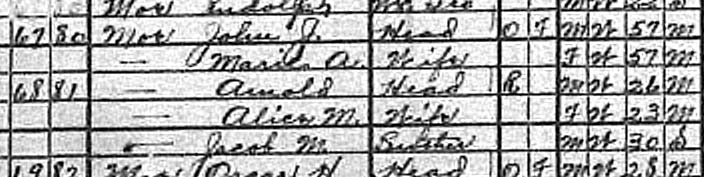 Moe
67 80 Moe John J. Head O F M W 57 M
— Maria A. Wife F W 57 M
68 81 — Arnold Head R M W 26 M
— Alice M. Wife F W 23 M
— Jacob M. M W 30 S
82 Moe Oscar H. Head O F M W 28 M